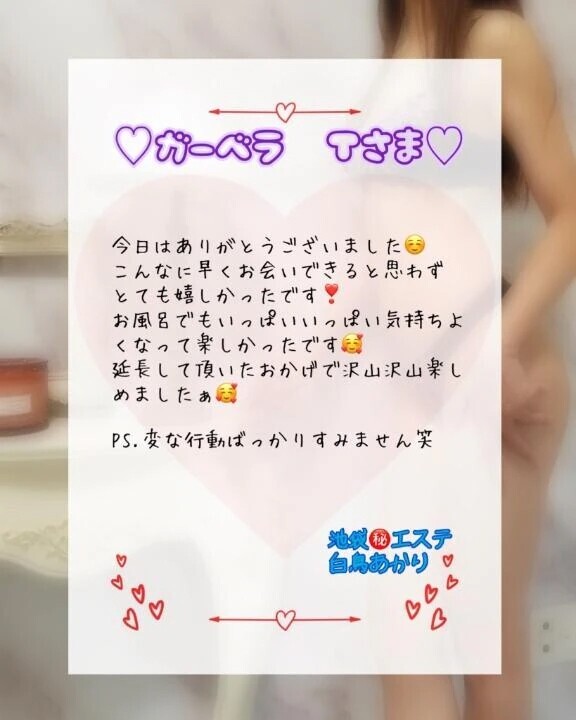 ♡ガーベラ Tさま♡
今日はありがとうございました☺️
こんなに早くお会いできると思わず
とても嬉しかったです❣️
お風呂でもいっぱいいっぱい気持ちよ
くなって楽しかったです🥰
延長して頂いたおかげで沢山沢山楽し
めましたぁ🥰
PS.変な行動ばっかりすみません笑
池袋㊙️エステ
白鳥あかり